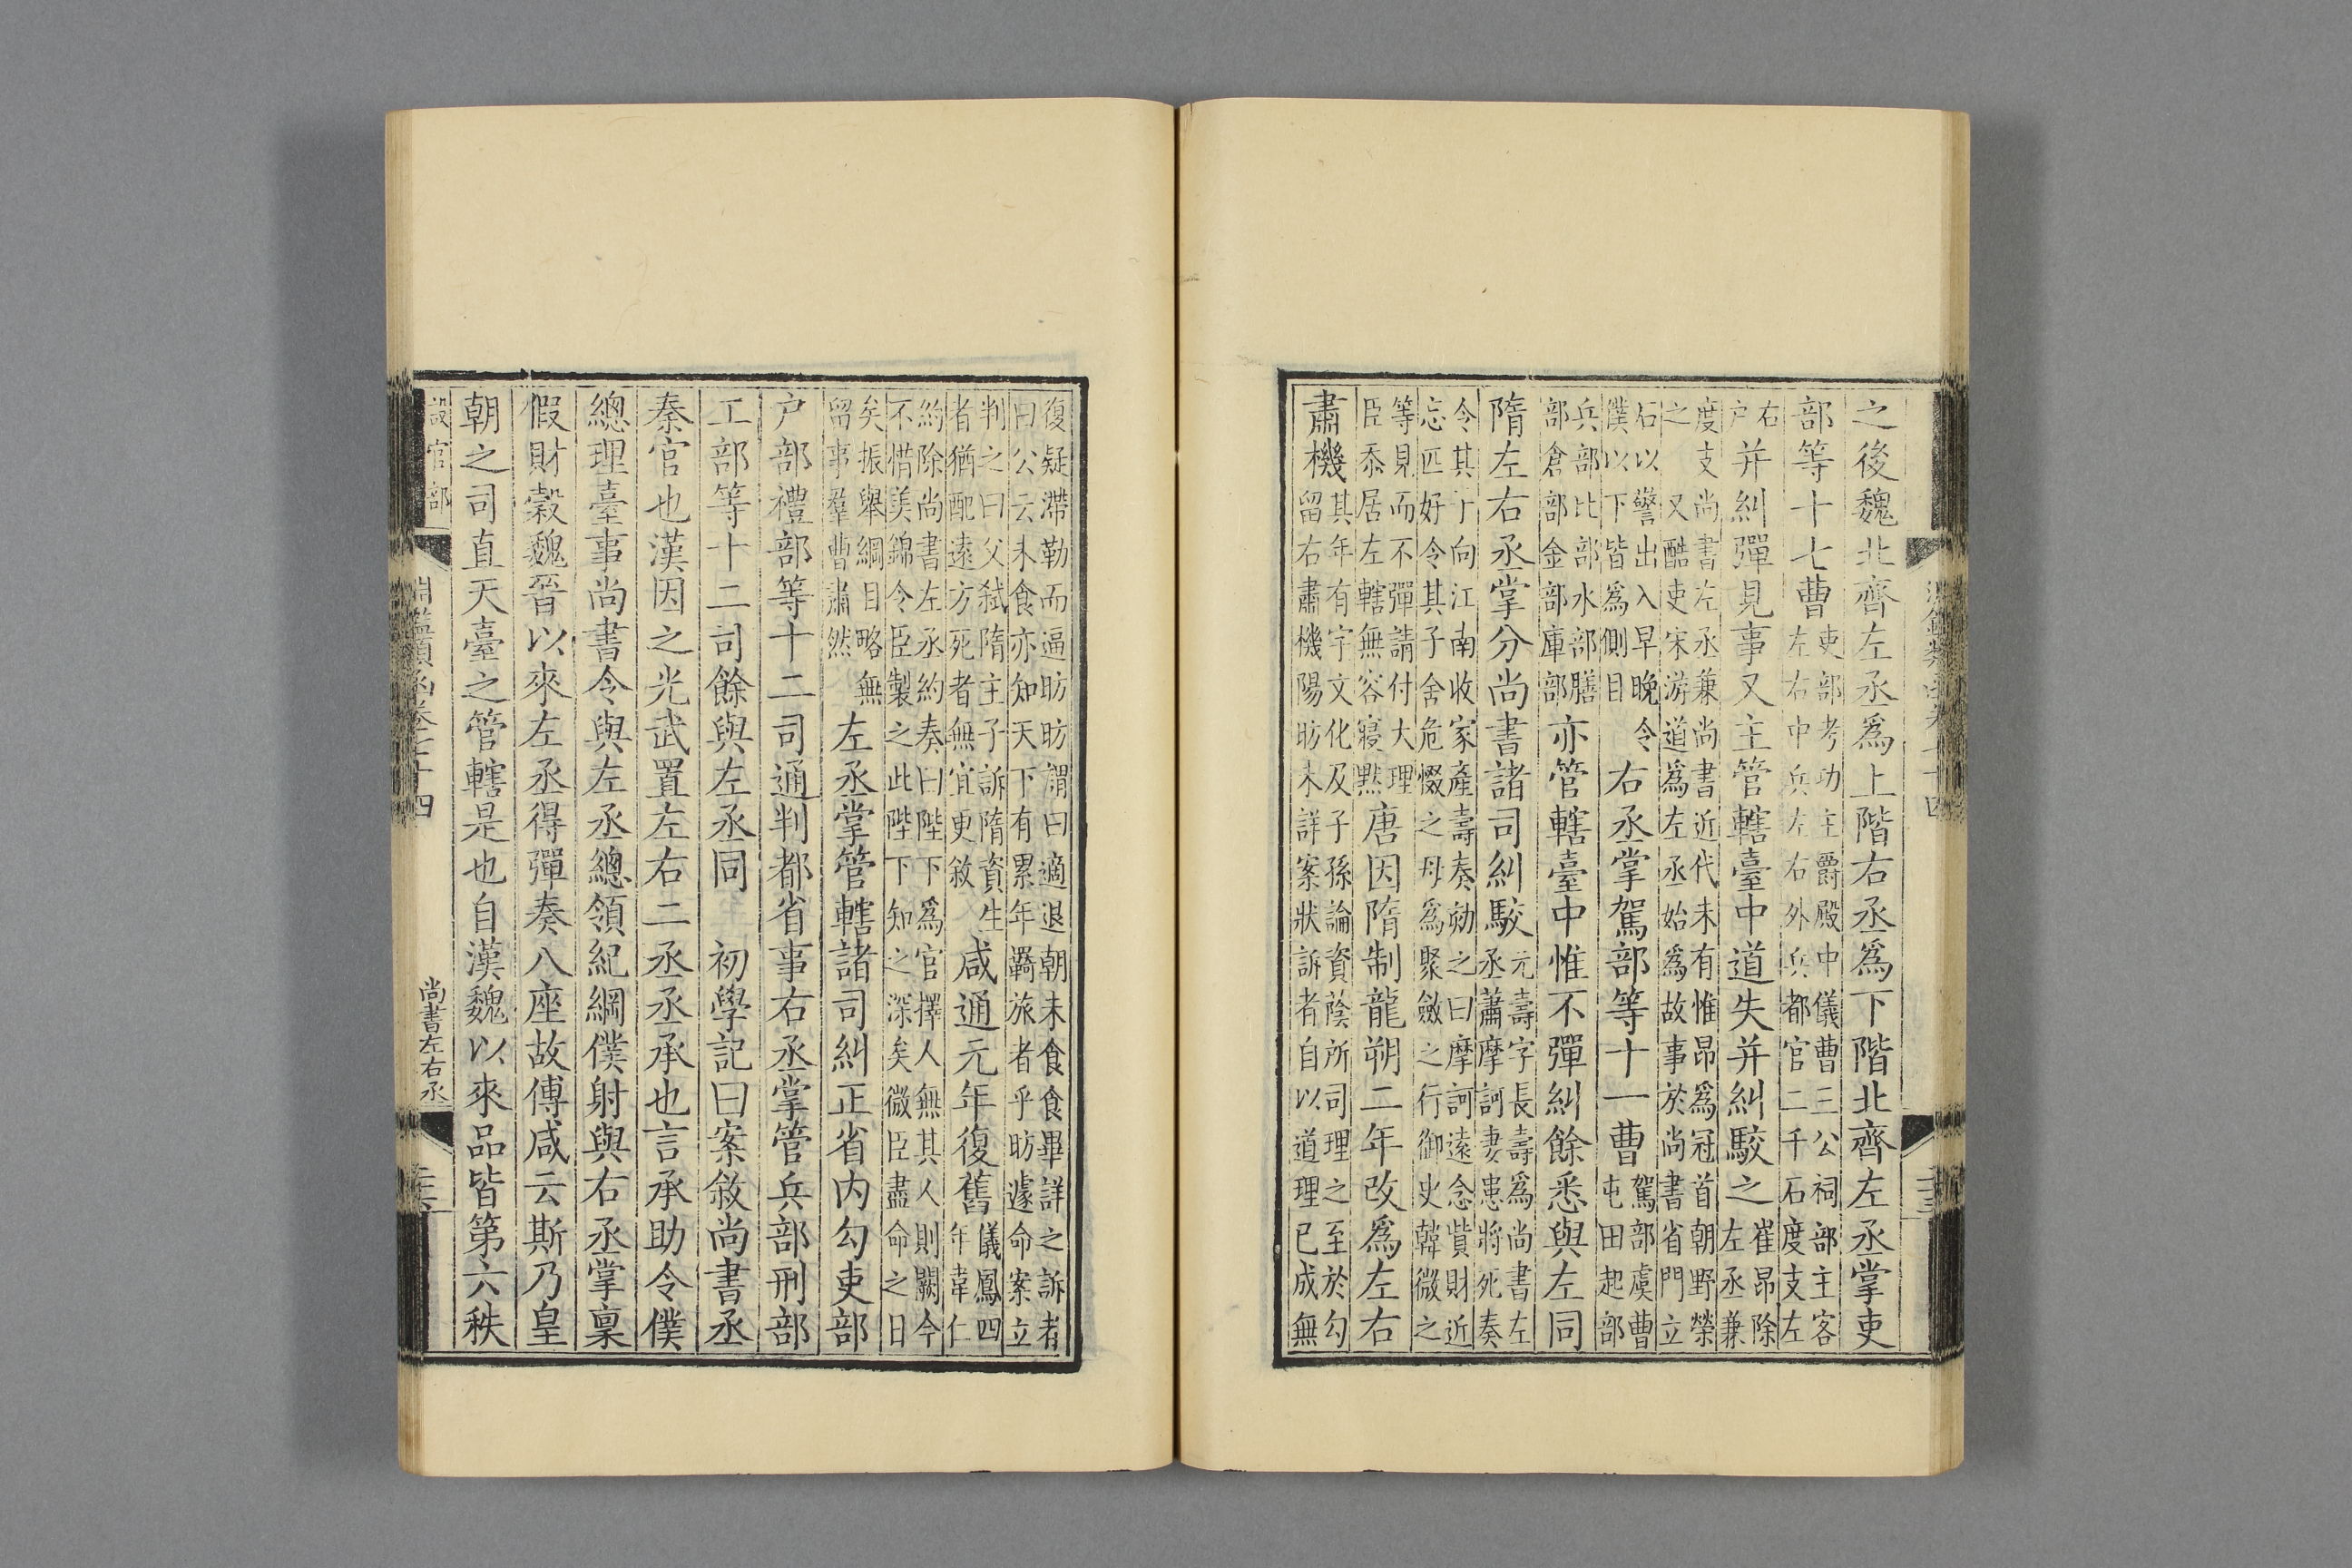 之後魏北齊左丞為上階右丞為下階北齊左丞掌吏
部等十七曹
吏部考功主爵殿中儀曹三公祠部主客
左右中兵左右外兵都官二千石度支左
右
户
并糾彈見事又主管轄臺中道失并糾駮之
崔昂除
左丞兼
度支尚書左丞兼尚書近代未有惟昂為冠首朝野榮
之 又酷吏宋游道為左丞始為故事於尚書省門立
石以譬出入早晚令
僕以下皆為側目
右丞掌駕部等十一曹
駕部虞曹
屯田起部
兵部比部水部膳
部倉部金部庫部
亦管轄臺中惟不彈糾餘悉與左同
隋左右丞掌分尚書諸司糾駮
元壽字長壽為尚書左
丞蕭摩訶妻患將死奏
令其子向江南收家產壽奏劾之曰摩訶遠念貲財近
忘匹好令其子舍危惙之母為聚斂之行御史韓微之
等見而不彈請付大理
臣忝居左轄無容寢默
唐因隋制龍朔二年改為左右
肅機
其年有宇文化及子孫論資蔭所司理之至於勾
留右肅機陽昉未詳案狀訴者自以道理已成無
復疑滯勒而逼昉昉謂曰適退朝未食食畢詳之訴者
曰公云未食亦知天下有累年羇旅者乎昉遽命案立
判之曰父弑隋主子訴隋資生
者猶配遠方死者無宜更敘
咸通元年復舊
儀鳳四
年韋仁
約除尚書左丞約奏曰陛下為官擇人無其人則闕今
不惜美錦令臣製之此陛下知之深矣微臣盡命之日
矣振舉綱目略無
留事羣曹肅然
左丞掌管轄諸司糾正省内勾吏部
户部禮部等十二司通判都省事右丞掌管兵部刑部
工部等十二司餘與左丞同 初學記曰案敘尚書丞
秦官也漢因之光武置左右二丞丞承也言承助令僕
總理臺事尚書令與左丞總領紀綱僕射與右丞掌稟
假財穀魏晉以來左丞得彈奏八座故傅咸云斯乃皇
朝之司直天臺之管轄是也自漢魏以來品皆第六秩
設官部
淵鑑類函卷七十四
尚書左右丞